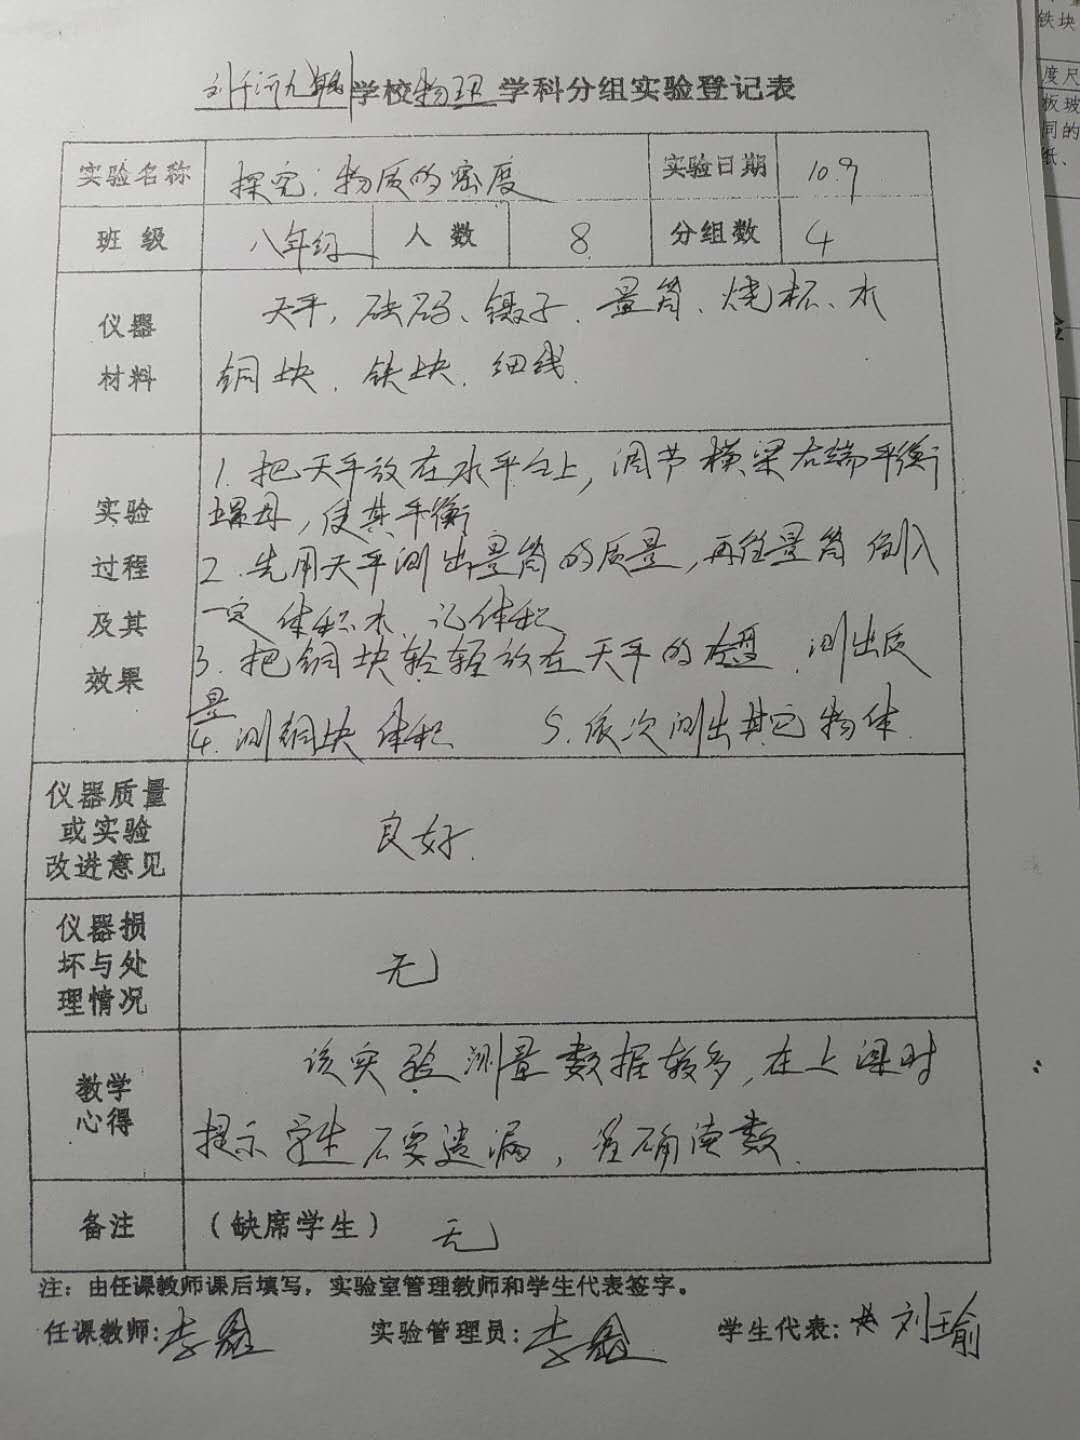 学校物理学科分组实验登记表
实验名称 探究:物质的密度 实验日期 10.9
班级 八年级 人数 8 分组数 4
仪器材料 天平,砝码、镊子、量筒、烧杯、水
铜块、铁块、细线.
实验过程及其效果 1.把天平放在水平台上,调节横梁右端平衡
螺母,使其平衡
2.先用天平测出量筒的质量,再往量筒倒入
一定体积水、记体积
3.把铜块轻轻放在天平的左 测出质
量
4.测铜块体积 5.依次测出其它物体.
仪器质量或实验改进意见 良好.
仪器损坏与处理情况 无
教学心得 该实验测量数据较多,在上课时
提示学生不要遗漏,准确读数.
备注 (缺席学生) 无
注:由任课教师课后填写,实验室管理教师和学生代表签字。
任课教师:李 实验管理员:李 学生代表:刘瑜
铁块
度尺
板玻
同的
纸、